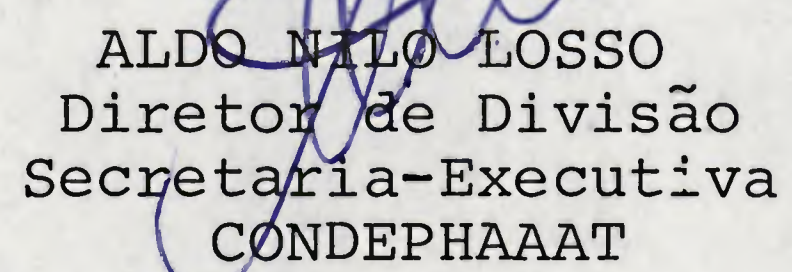 ALDO NILO LOSSO
Diretor de Divisão
Secretaria-Executiva
CONDEPHAAAT